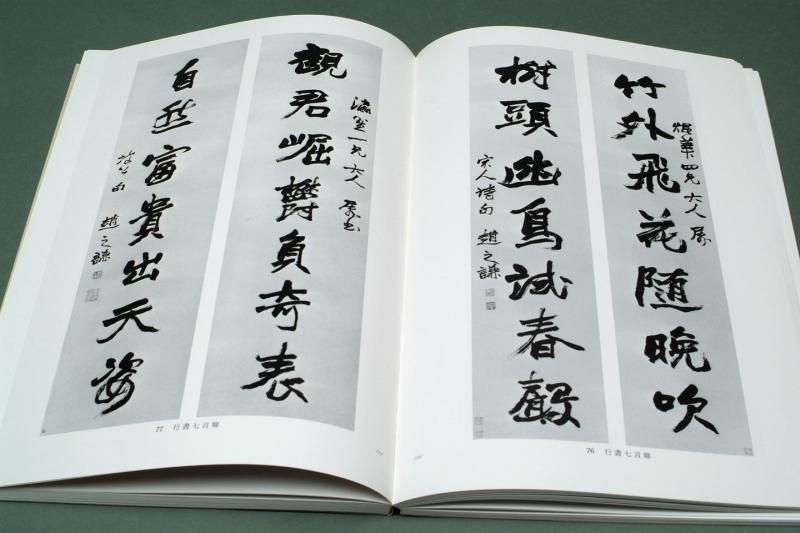 竹外飛花随晚吹
華四兄大人屬
樹頭幽鳥試春聲
宋人詩句 趙之謙
76 行書七言聯
觀君崛鬱負奇表
一兄大人屬書
自然富貴出天姿
坡公句 趙之謙
77 行書七言聯